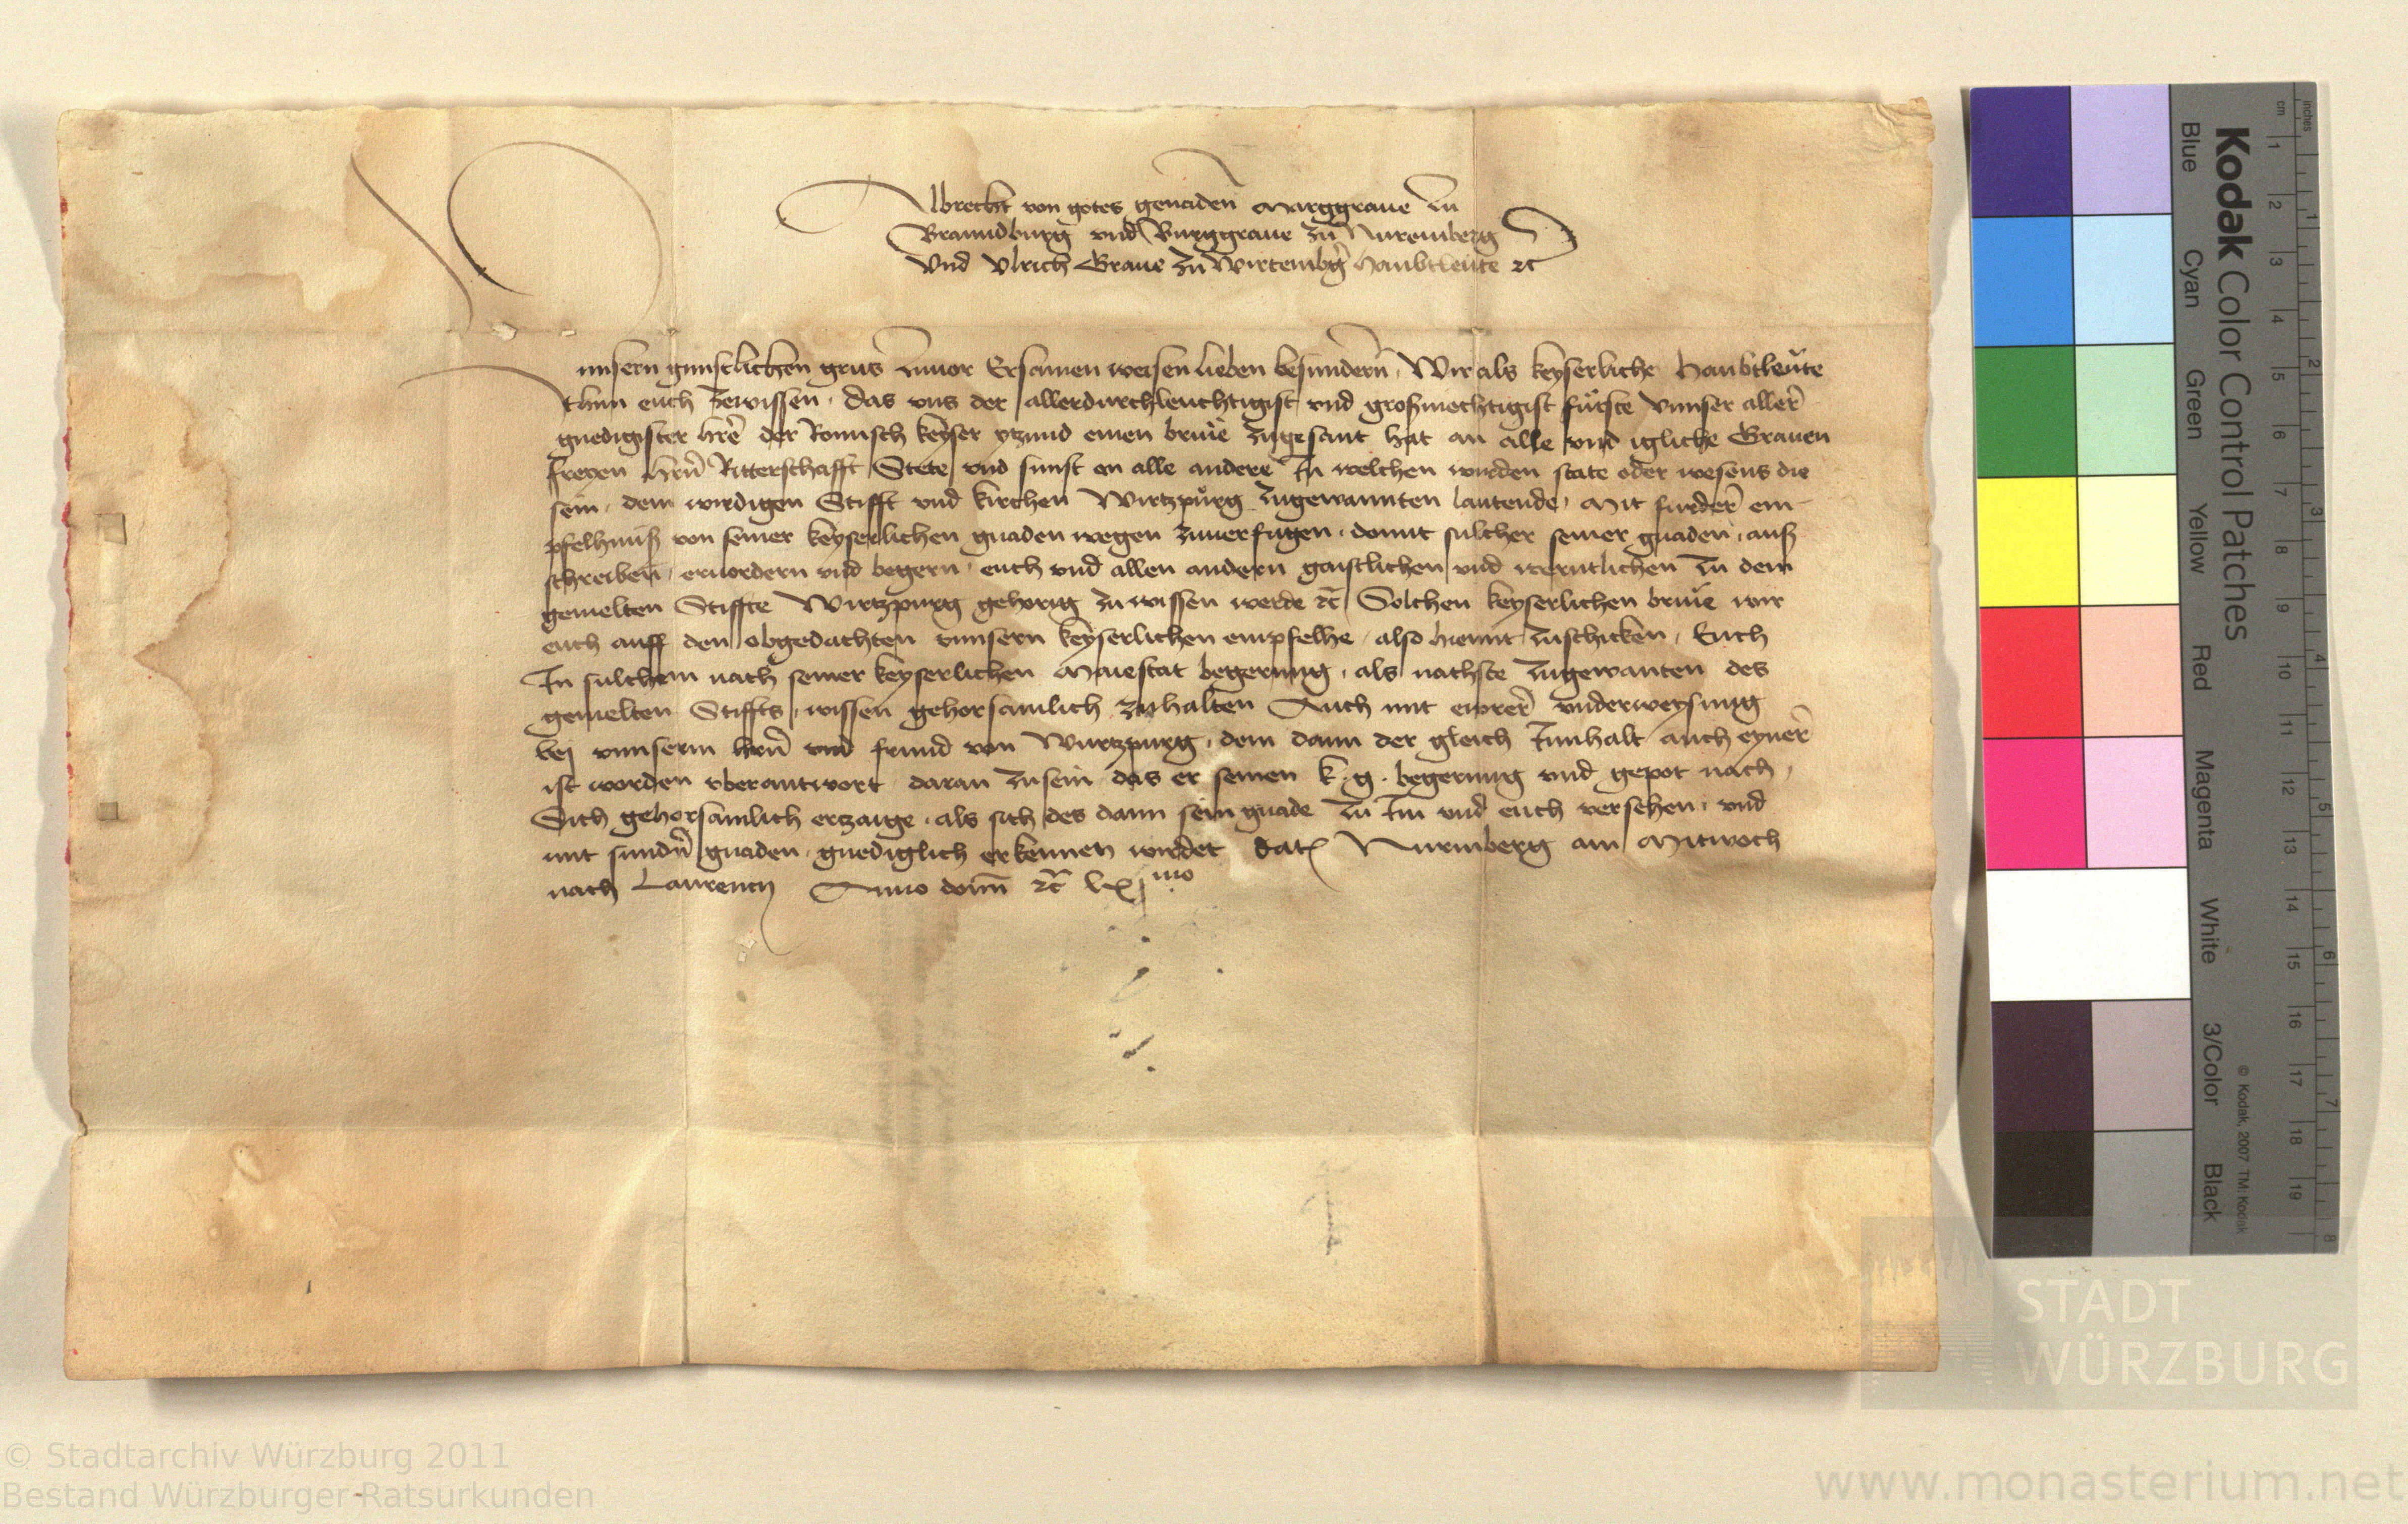 Albrecht von gotes genaden Marggraue zu
Brannd̄burg vnd Burggraue zu Nuremberg
Vnd Vlrich Graue zu Wirtembḡ haubtleute ⁊c̄
Unsern gunstlichen grus zuuor Ersamen weisen lieben besundern̄, Wir als keyserliche haubtleute
thun euch zewissen, das vns der allerdurchleuchtigist vnd großmechtigist fürste vnnser aller
gnedigister hr̄e der Romisch keyser ytzund einen briue zugesant hat an alle vnd igliche Grauen
freyen hrn̄ Ritterschafft Stete vnd sunst an alle andere In welchen wirden state oder wesens die
sein, dem wirdigen Stifft vnd kirchen Wirtzpurg zugewannten lautende, Mit furder em-
pfelhnuß von seiner keyserlichen gnaden wegen zuuerfugen, domit sulcher seiner gnaden, auß
schreiben, eruordern vnd begern, euch vnd allen andern gaistlichen vnd werntlichen zu dem
gemelten Stiffte Wirtzpurg gehorig zu wissen werde ⁊c̄ Solchen keyserlichen briue wir
euch auff den obgedachten vnnsern keyserlichen empfelhe, also hiemit zuschicken, Euch
In sulchem nach seiner keyserlichen Maiestat begerung, als nachste zugewanten des
gemelten Stiffts, wissen gehorsamlich zuhalten Auch mit ewrer vnderweysung
bei vnnserm hrn̄ vnd frund von Wurtzpurg, dem dann der gleich Innhalt auch eyner
ist worden vberantwort daran zusein das er seinen k. g. begerung vnd gepot nach,
Sich gehorsamlich ertzaige, als sich des dann sein gnade zu Im vnd euch versehen, vnd
mit sundn̄ gnaden, gnediglich erkennen wirdet Dat Nuremberg am Mitwoch
nach Laurencij Anno domī ⁊c̄ lxjmo
Kodak Color Control Patches
Blue Cyan Green Yellow Red Magenta White 3/Color Black
© Kodak, 2007 TM: Kodak
inches 1 2 3 4 5 6 7 8
cm 1 2 3 4 5 6 7 8 9 10 11 12 13 14 15 16 17 18 19
STADT
WÜRZBURG
© Stadtarchiv Würzburg 2011
Bestand Würzburger Ratsurkunden
www.monasterium.net